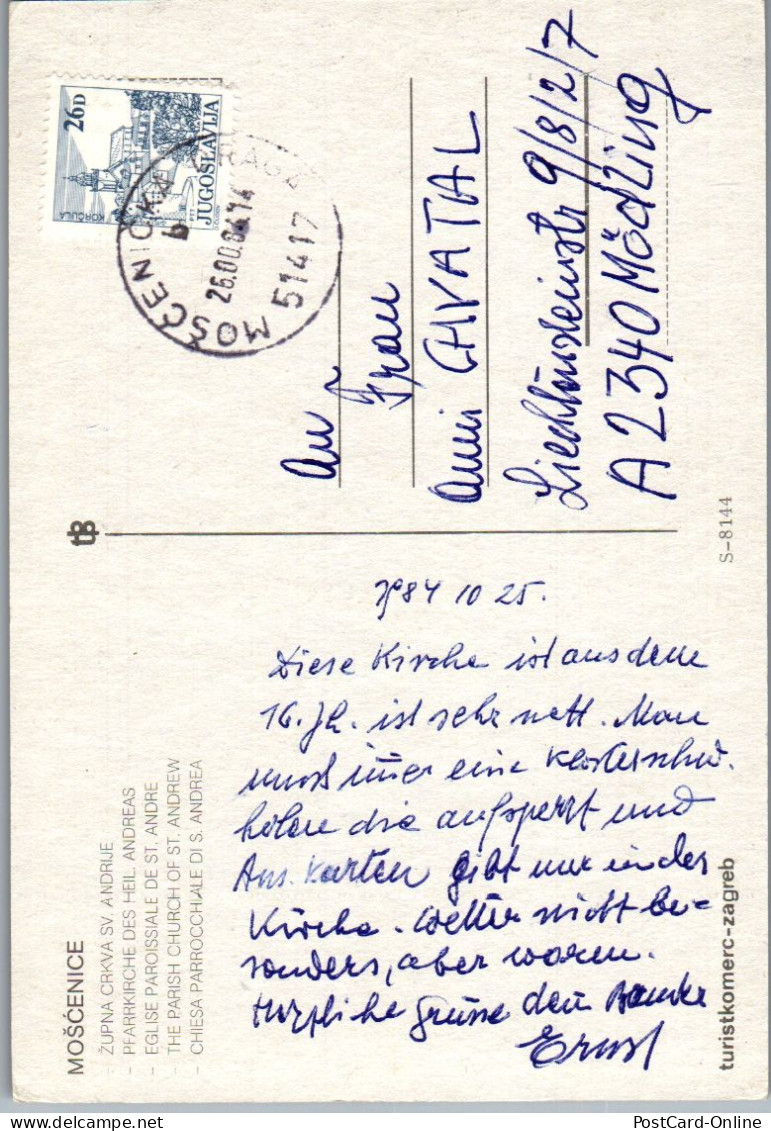 MOŠĆENICE
- ŽUPNA CRKVA SV. ANDRIJE
- PFARRKIRCHE DES HEIL. ANDREAS
- EGLISE PAROISSIALE DE ST. ANDRE
- THE PARISH CHURCH OF ST. ANDREW
- CHIESA PARROCCHIALE DI S. ANDREA
1984 10 25.
Diese Kirche ist aus dem
16. Jh. ist sehr nett. Man
muss immer eine Klosterschw.
holen die aufsperrt und
Ans. Karten gibt nur in der
Kirche. Wetter nicht be-
sonders, aber warm.
Herzliche Grüsse dein
Ernst
turistkomerc-zagreb
26D
JUGOSLAVIJA
KORČULA
PTT
MOŠĆENIČKA DRAGA
b
26.00.84.14
51417
An
Frau
Anni CHVATAL
Liechtensteinstr 9/8/2/7
A 2340 Mödling
S-8144
PostCard-Online